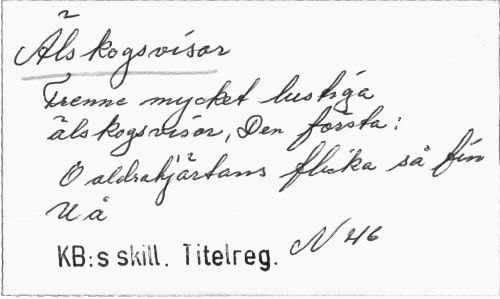 Älskogsvisor
Trenne mycket lustiga
älskogsvisor, Den första:
O aldrahjärtans flicka så fin
U å
KB:s skill. Titelreg. N 46